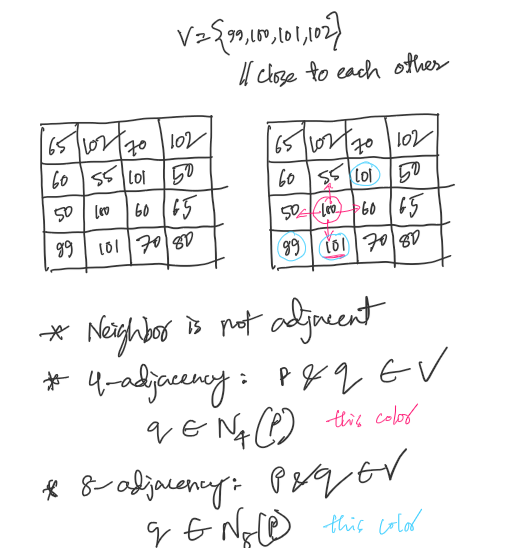 V={99,100,101,102}
// close to each other
65 102 70 102
60 55 101 50
50 100 60 65
99 101 70 80
65 102 70 102
60 55 101 50
50 100 60 65
99 101 70 80
* Neighbor is not adjacent
* 4-adjacency: P & q ∈ V
q ∈ N4(P) this color
* 8-adjacency: P & q ∈ V
q ∈ N8(P) this color